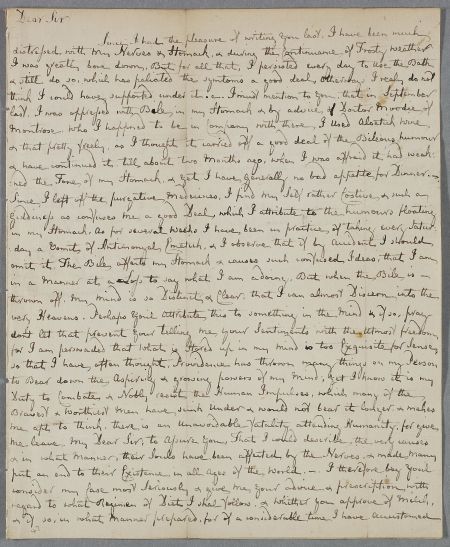 Dear Sir
Since I had the pleasure of writing you last, I have been much
distressed, with my Nerves & Stomach, & during the continuance of Frosty weather
I was greatly bore down, But for all that, I persisted every day to use the Bath
& still do so, which has paliated the symtoms a good deal, otherways I realy do not
think I could have supported under it. I must mention to you, that in September
last, I was oppressed with Bile in my Stomach & by advice of Doctor Moodie of
Montrose who I happened to be in Company with there, I used Aloatick Wine
& that pretty freely, as I thought it carried off a good deal of the Bileous humour
& have continued it till about two Months ago, when I was affraid it had weak
ned the Tone, of my Stomach, & yet I have generally no bad appetite for Dinner.
Since I left off the purgative Medecines, I find my Self rather Costive, & such a
giddiness as confuses me a good Deal, which I attribute to the humours floating
in my Stomach. As for several weeks I have been in practice of taking every Satur
day a Vomit of Antimonyal, & I observe that if by accident I should
omit it, The Bile affects my Stomach & causes such confused Ideas, that I am
in a Manner at a loss to say what I am adoing. But when the Bile is
thrown off, my mind is so Distinct & Clear, that I can almost Discern into the
very Heavens. Perhaps you'l attribute this to something in the Mind & if so, pray
dont let that prevent your telling me your Sentiments with the utmost freedom
for I am persuaded that what is Stored up in my mind is too Exquisite for Sense,
so that I have often thought, Providence has thrown many things on my Person
to Bear down the Aspiring & growing powers of my Mind, & yet I know it is my
Duty to Combate & Nobly resent the Human Impulses, which many of the
Bravest & worthiest Men have sunk under & would not bear it longer & makes
me apt to think, there is an Unavoidable fatality attending Humanity, for give
me leave, My Dear Sir, to Assure you, That I could describe, the very causes
& in what Manner, their Souls have been affected by the Nerves, & made many
put an end to their Existence in all ages of the World. I therefore beg you'l
consider my Case most Seriously & give me your advice & prescription, with
regard to what Regimen of Diet I shal follow, & whether you approve of Milk,
& if so, in what manner prepared, for of a considerable time I have accustomed